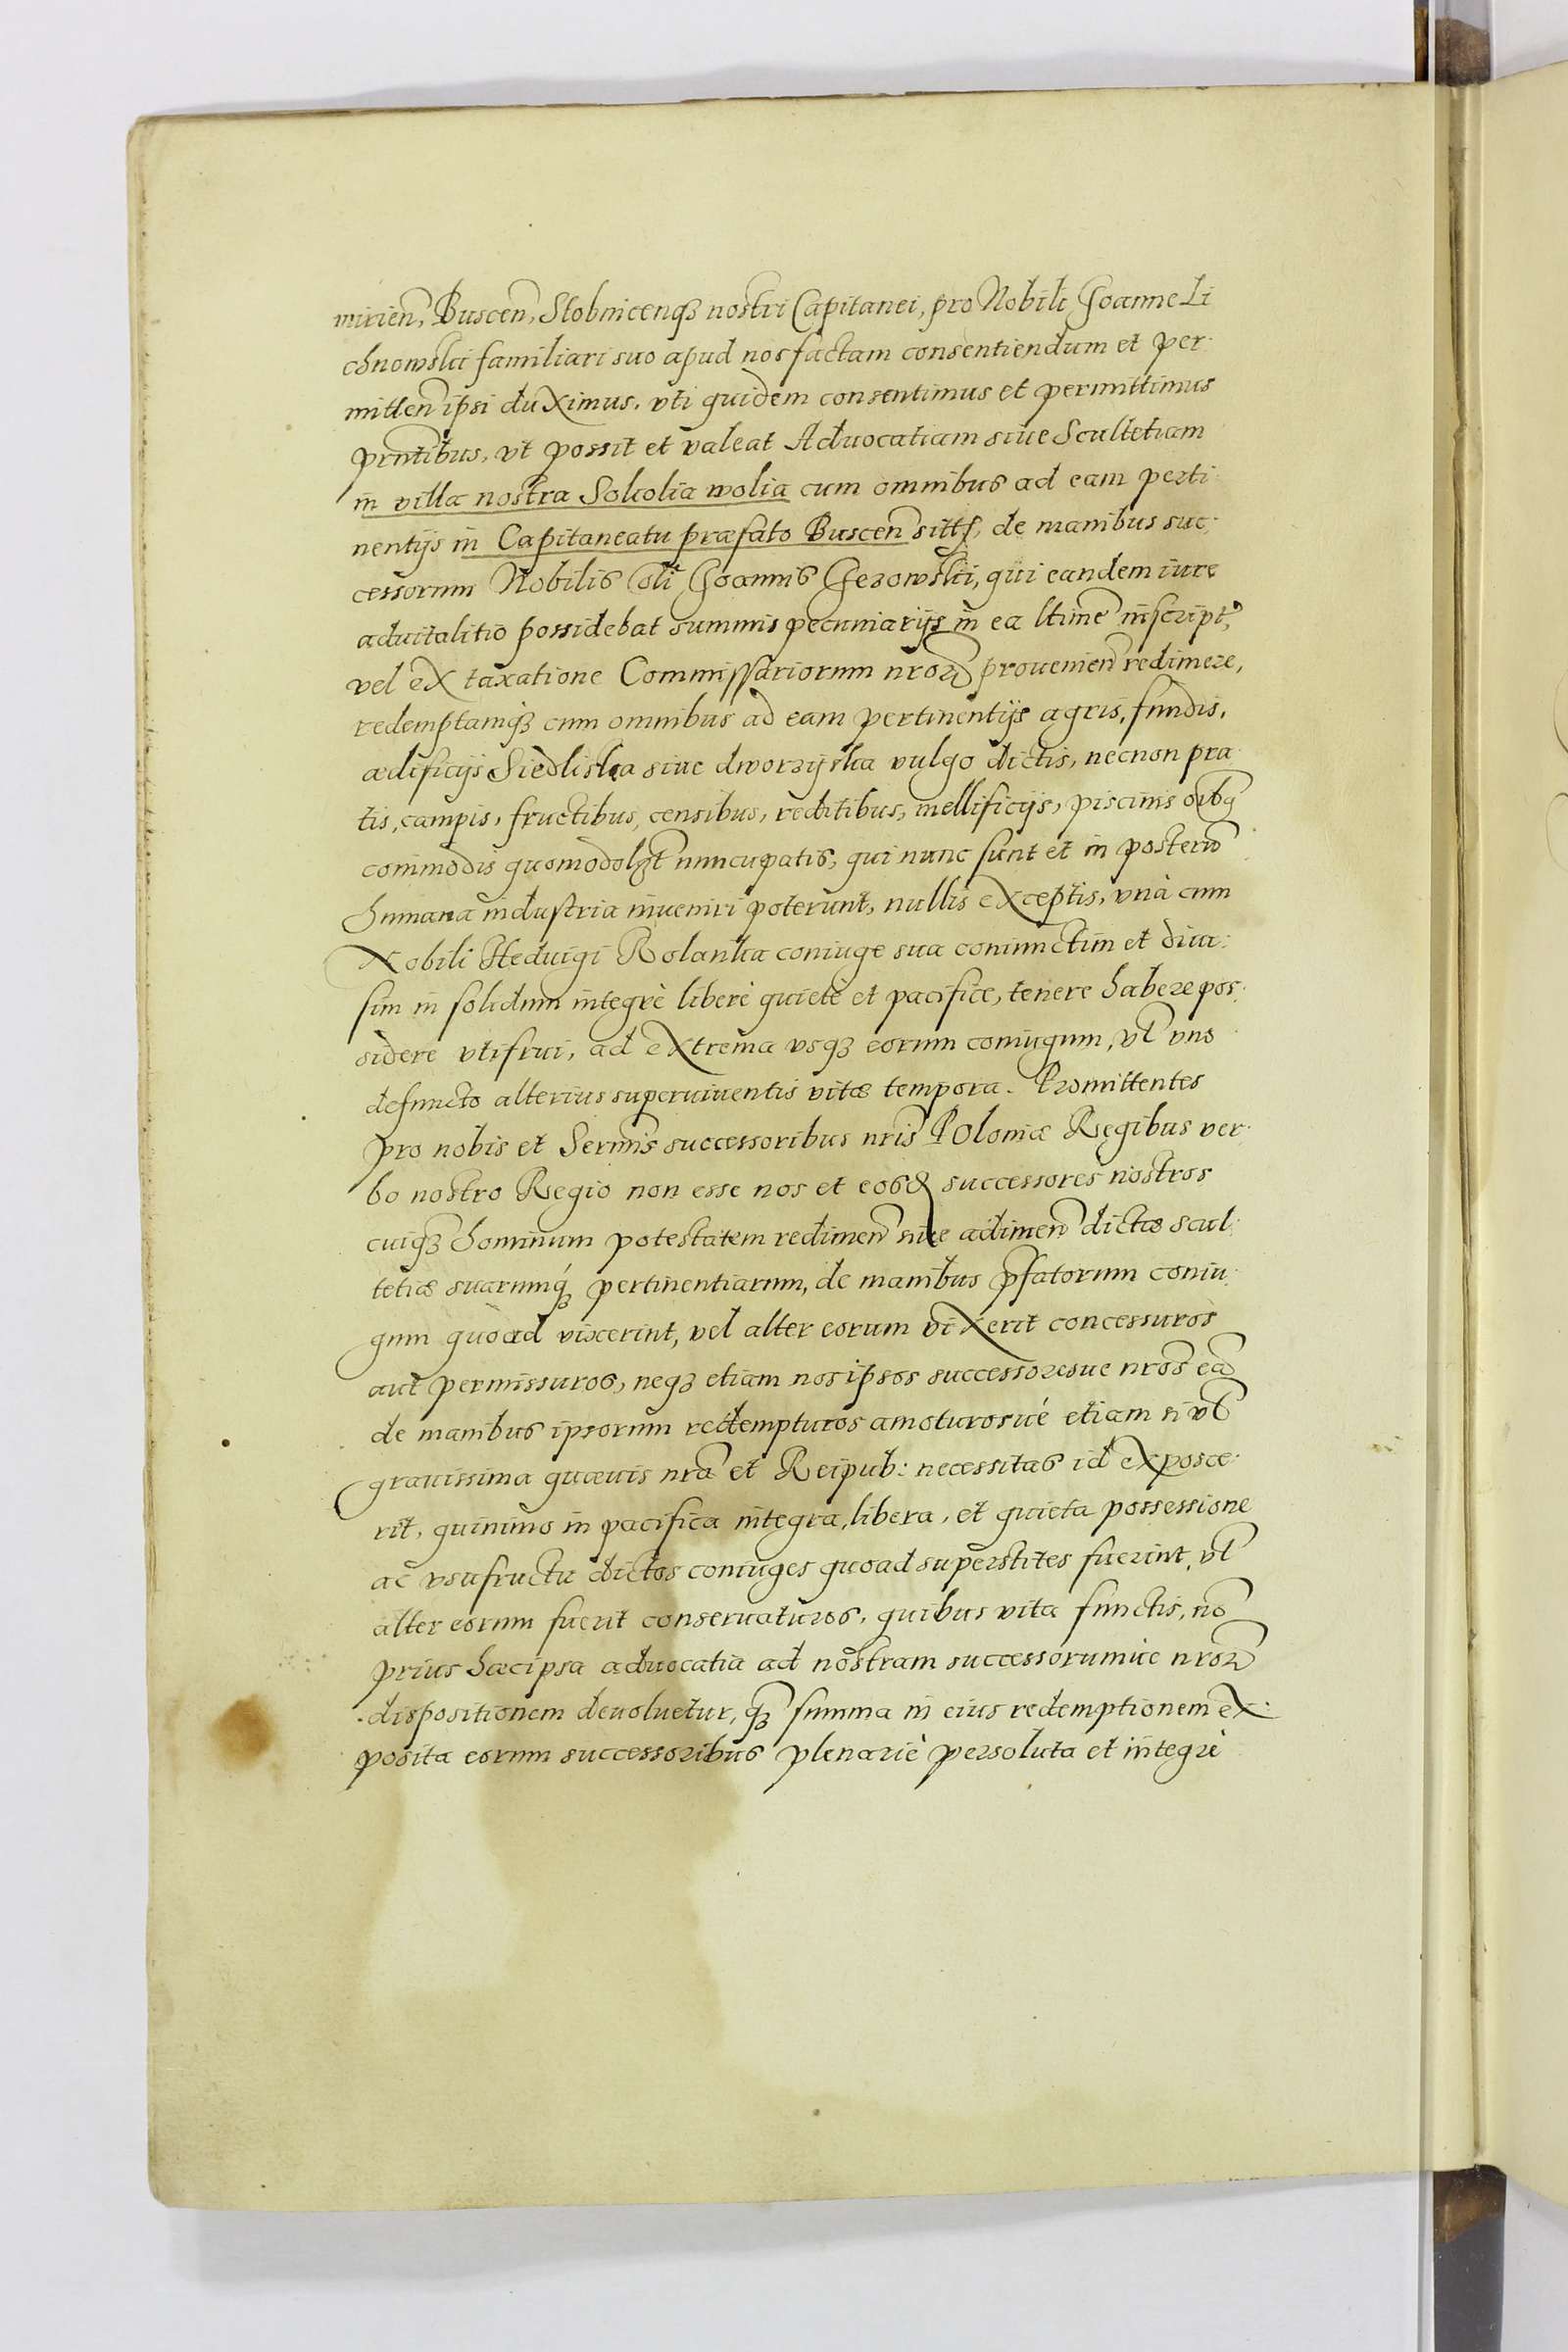 mirien̄, Buscen̄, Stobnicenqȝ nostri Capitanei, pro Nobili Joanne Li
chnowski familiari suo apud nos factam consentiendum et per
mitten̄ ipsi duximus, vti quidem consentimus et permittimus
prn̄tibus, vt possit et valeat Aduocatiam siue Scultetiam
in villa nostra Sokolia wolia cum omnibus ad eam perti
nentijs in Capitaneatu præfato Buscen̄ sitt, de manibus suc
cessorum Nobilis oli Joannis Jezowski, qui eandem iure
aduitalitio possidebat summis pecuniarijs in ea ltime inscript,
vel ex taxatione Commissariorum nrorꝝ prouenien̄ redimere,
redemptamqȝ cum omnibus ad eam pertinentijs agris, fundis,
ædificijs Siedliska siue dworzyska vulgo dictis, necnon pra
tis, campis, fructibus, censibus, reditibus, mellificijs, piscinis oībq
commodis quomodolȝt nuncupatis, qui nunc sunt et in posterū
humana industria inueniri poterunt, nullis exceptis, vnà cum
Nobili Heduigi Rolanka coniuge sua coniunctim et diui
sim in solidum integrè liberè quietè et pacifice, tenere habere pos
sidere vtifrui, ad extrema vsqȝ eorum coniugum, vl vno
defuncto alterius superuiuentis vitæ tempora. Promittentes
pro nobis et Serm̄is successoribus nris Poloniæ Regibus ver
bo nostro Regio non esse nos et eosd successores nostros
cuiqȝ hominum potestatem redimen̄ siue adimen̄ dictæ scul
tetiæ suarumqȝ pertinentiarum, de manibus pfatorum coniu
gum quoad vixerint, vel alter eorum vixerit concessuros
aut permissuros, neqȝ etiam nos ipsos successoresue nros eā
de manibus ipsorum redempturos amoturosué etiam si vl
grauissima quæuis nrā et Reipub: necessitas id exposce
rit, quinimo in pacifica integra, libera, et quieta possessione
ac vsufructu dictos coniuges quoad superstites fuerint, vl
alter eorum fuerit conseruaturos, quibus vita functis, nō
prius hæc ipsa aduocatia ad nostram successorumue nrorꝝ
dispositionem deuoluetur, qȝ summa in eius redemptionem ex
posita eorum successoribus plenariè persoluta et integrè